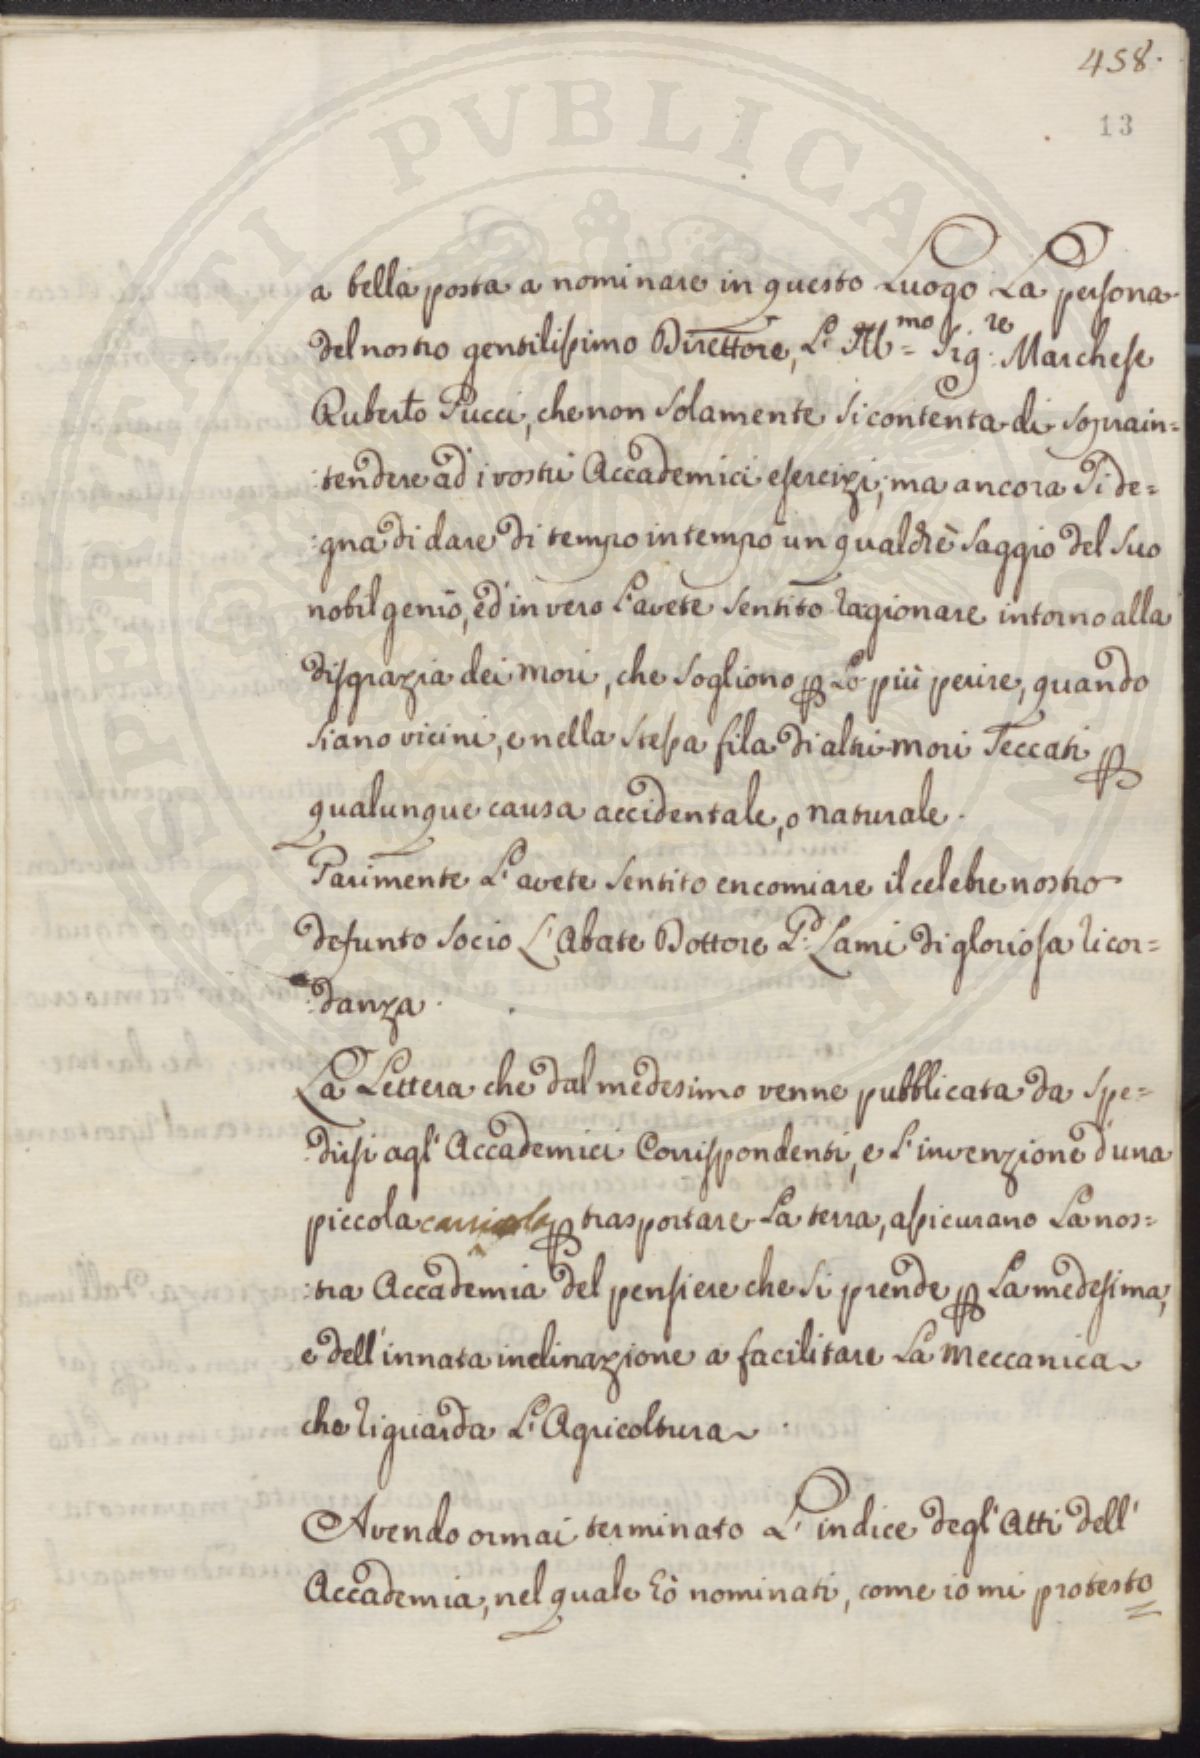 458.
13
a bella posta a nominare in questo Luogo La persona
del nostro gentilissimo Direttore, L' Ill.mo Sig.re Marchese
Ruberto Pucci, che non solamente si contenta di soprain=
:tendere ad i vostri Accademici esercizi; ma ancora Si de=
:gna di dare di tempo in tempo un qualchè saggio del suo
nobil genio, ed in vero l'avete sentito ragionare intorno alla
disgrazia dei mori, che sogliono p Lo più perire, quando
siano vicini, e nella stessa fila di altri mori Seccati p
qualunque causa accidentale, o naturale.
Parimente L'avete sentito encomiare il celebre nostro
defunto socio L'Abate Dottore Lami di gloriosa ricor=
:danza.
La Lettera che dal medesimo venne pubblicata da spe=
:dirsi agl'Accademici Corrispondenti, e L'invenzione d'una
piccola carriola p trasportare La terra, assicurano La nos=
:tra Accademia del pensiere che si prende p La medesima,
e dell'innata inclinazione a facilitare La Meccanica
che riguarda L'Agricoltura
Avendo ormai terminato L'indice degl'Atti dell'
Accademia, nel quale hò nominati, come io mi protesto
PERITATI PVBLICAE